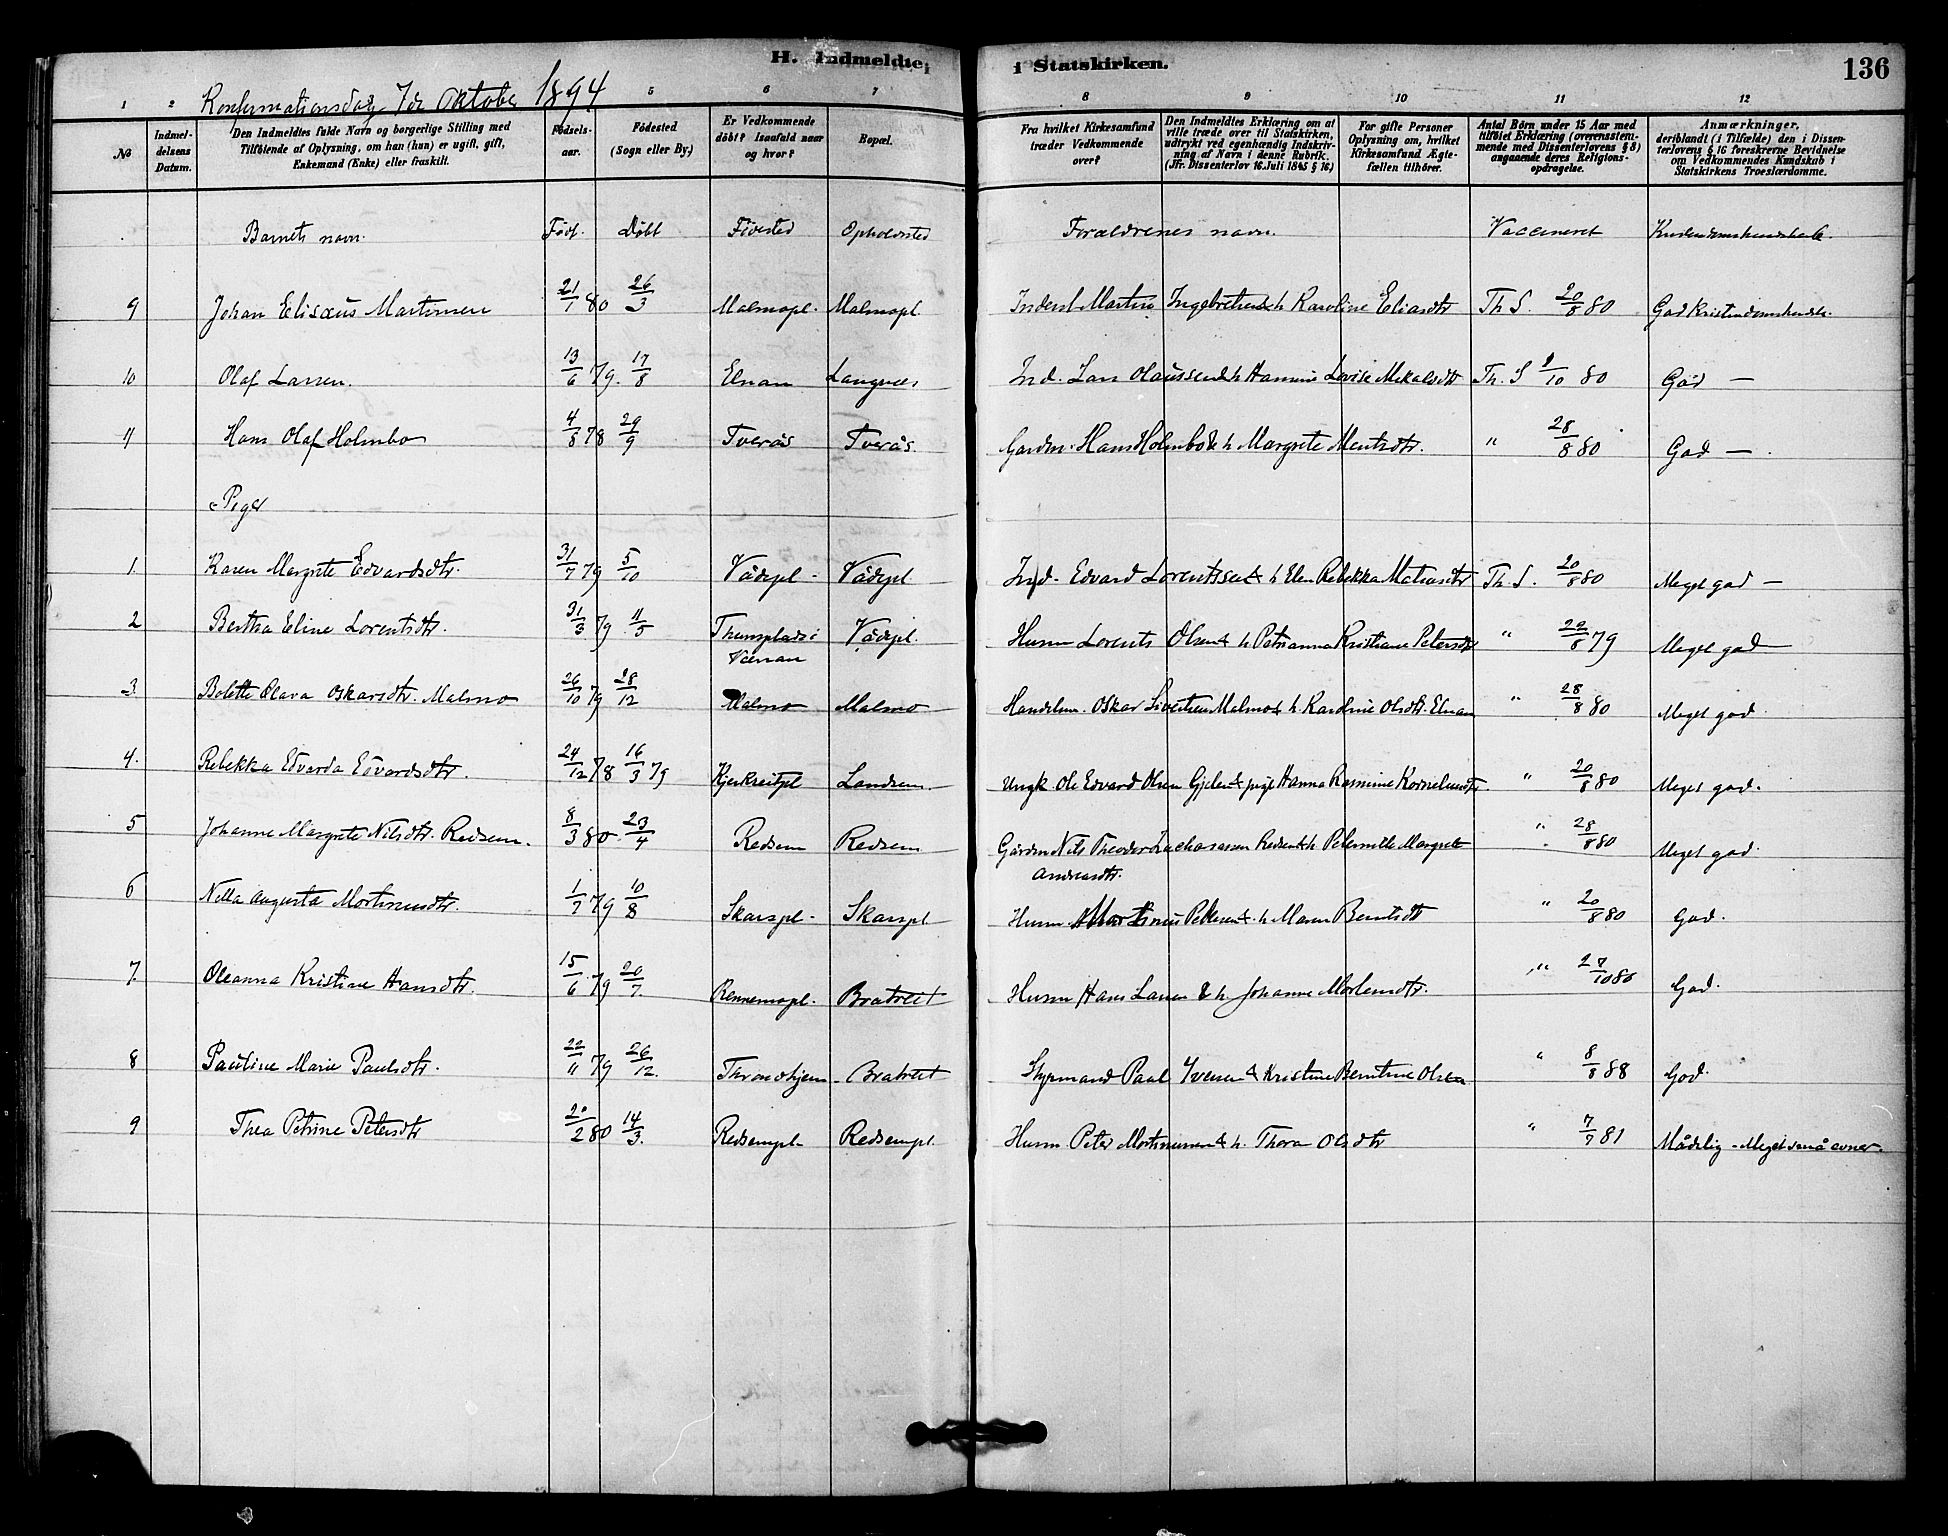 H. Indmeldte i Statskirken. 136
Konfirmationsdag 7de Oktober 1894
1 2 5 6 7 8 9 10 11 12
No
Indmeldelsens Datum.
Den Indmeldtes fulde Navn og borgerlige Stilling med
Tilføiende af Oplysning, om han (hun) er ugift, gift,
Enkemand (Enke) eller fraskilt.
Fødselsaar.
Fødested
(Sogn eller By.)
Er Vedkommende
døbt? Isaafald naar
og hvor?
Bopæl.
Fra hvilket Kirkesamfund
træder Vedkommende
over?
Den Indmeldtes Erklæring om at
ville træde over til Statskirken,
udtrykt ved egenhændig Indskrivning
af Navn i denne Rubrik.
(Jfr. Dissenterlov 16. Juli 1845 § 16)
For gifte Personer
Oplysning om, hvilket
Kirkesamfund Ægtefællen
tilhører.
Antal Børn under 15 Aar med
tilføiet Erklæring (overensstemmende
med Dissenterlovens § 8)
angaaende deres Religionsopdragelse.
Anmærkninger,
deriblandt (i Tilfælde) den i Dissenterlovens
§ 16 foreskrevne Bevidnelse
om Vedkommendes Kundskab i
Statskirkens Troeslærdomme.
Barnets navn. Født. Døbt Fødested Opholdsted Forældrenes navn. Vaccineret Kristendomskundskab.
9 Johan Elisæus Martinsen 21/1 80 26/3 Malmopl. Malmopl. Inderst Martin Ingebretsen & h Karoline Eliasdtr Th S. 20/8 80 God Kristendomskundsk.
10 Olaf Larsen. 13/6 79. 17/8 Elnan Langnes Ind. Lars Olaussen & h Hannine Lovise Mikalsdtr Th. S 9/10 80 God —
11 Hans Olaf Holmbo 4/8 78 29/9 Tverås Tverås. Gardm. Hans Holmbo & h Margrete Mentsdtr. " 28/8 80 God — .
Piger
1 Karen Margrete Edvardsdtr. 31/7 79 5/10 Vådepl. Vådepl. Ind. Edvard Lorentssen & h Elen Rebekka Matiasdtr Th. S. 20/8 80 Meget god —
2 Bertha Eline Lorentsdtr. 31/3 79 11/5 Vådepl. Husm Lorents Olsen & h Petrianna Kristiane Petersdtr " 22/8 79 Meget god
3 Bolette Olava Oskarsdtr. Malmo 26/10 79 28/12 Malmo Malmo Handelsm. Oskar Sivertsen Malmo & h Karoline Olsdtr. Elnan " 28/8 80 Meget god.
4. Rebekka Edvarda Edvardsdtr. 24/12 78 16/3 79 Landsem. Ungk. Ole Edvard Olsen & pige Hanna Rasmine Kornelius dtr " 20/8 80 Meget god.
5 Johanne Margrete Nilsdtr. Redsem. 8/3 80 23/4 Redsem Redsem Gårdm Nils Theodor Zachariassen Redsem & h. Peternille Margrete
Andreasdtr. " 28/8 80 Meget god.
6 Nella Augusta Mortinusdtr. 1/7 79 10/8 Skarspl. Skarspl Husm Mortinus Pettersen & h Maren Berntsdtr " 20/8 80 God.
7. Oleanna Kristine Hansdtr. 15/6 79 20/7. Rennemspl. Bratreit Husm Hans Larsen & h. Johanna Mortensdtr. " 27/10 80 God.
8 Pauline Marie Paulsdtr. 22/11 79 26/12. Throndhjem Bratreit Styrmand Paul Iversen & Kristine Berntine Olsen " 8/8 88 God.
9 Thea Petrine Petersdtr 20/2 80 14/3. Redsempl. Redsempl. Husm Peter Mortinussen & h. Thora Olsdtr " 7/7 81 Mådelig - Meget små evner.